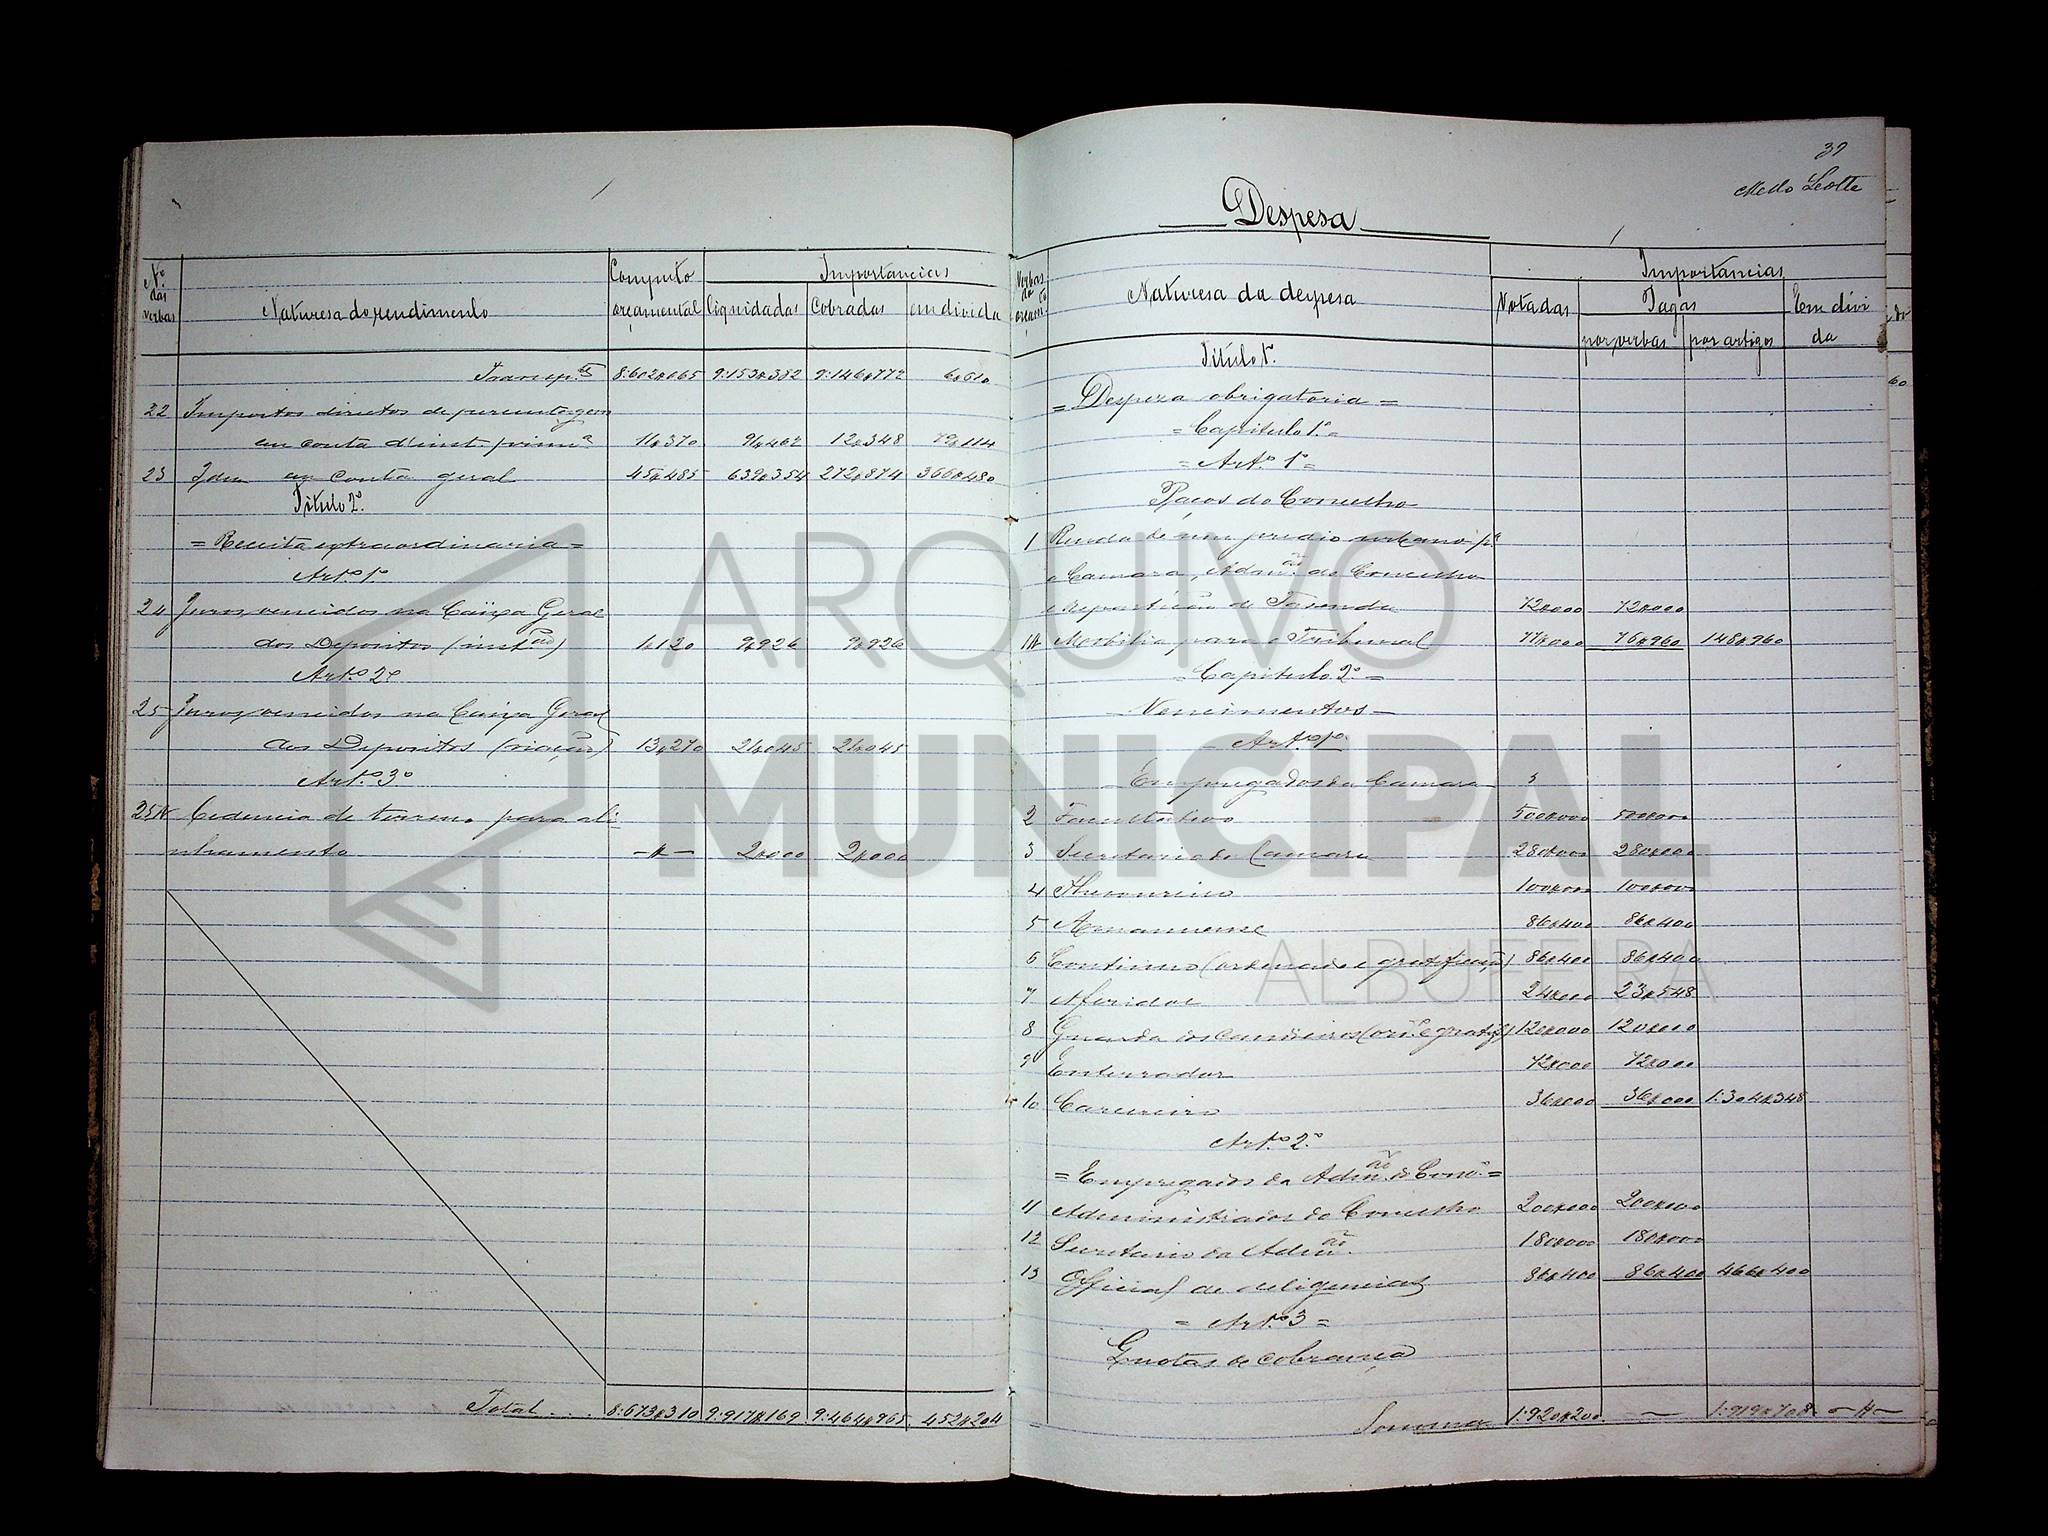 Nº das verbas
Naturesa do rendimento
Computo orçamental
Importancias
liquidadas
Cobradas
em divida
Transp.te 8:602$065 9:153$382 9:146$772 6$610
22 Impostos directos de percentagem
em conta d'inst. prim.ª 11$370 91$462 12$348 79$114
23 Idem em conta geral 45$485 639$354 272$874 366$480
Titulo 2º
= Receita extraordinaria =
Art.º 1º
24 Juros vencidos na Caixa Geral
dos Depositos (inst.ão) 1$120 9$926 9$926
Art.º 2º
25 Juros vencidos na Caixa Geral
dos Depositos (viação) 13$270 21$045 21$045
Art.º 3º
25A Cedencia de terreno para ali-
nhamento —$— 2$000 2$000
Total... 8:673$310 9:917$169 9:464$965 452$204
39
Mello Leotte
Despesa
Verbas do orçam.to
Naturesa da despesa
Importancias
Votadas
Pagas
por verbas
por artigos
Em divida
Titulo 1º
= Despeza obrigatoria =
= Capitulo 1º =
= Art.º 1º =
Paços do Concelho
1 Renda de um predio urbano p.ª
a Camara, Adm.ão do Concelho
e repartição de Fasenda 72$000 72$000
1A Mobilia para o Tribunal 77$000 76$960 148$960
= Capitulo 2º =
— Vencimentos —
— Art.º 1º
— Empregados da Camara —
2 Facultativo 500$000 500$000
3 Secretario da Camara 280$000 280$000
4 Thesoureiro 100$000 100$000
5 Amanuense 86$400 86$400
6 Continuo (ordenado e gratificação) 86$400 86$400
7 Aferidor 24$000 23$548
8 Guarda dos candieiros (ord. e gratif.) 120$000 120$000
9 Enterrador 72$000 72$000
10 Carcereiro 36$000 36$000 1:304$348
Art.º 2º
= Empregados da Adm.ão do Conc.º =
11 Administrador do Concelho 200$000 200$000
12 Secretario da Adm.ão 180$000 180$000
13 Official de deligencias 86$400 86$400 466$400
= Art.º 3 =
Quotas de cobrança
Somma 1:920$200 — 1:919$708 —$—
ARQUIVO
MUNICIPAL
ALBUFEIRA